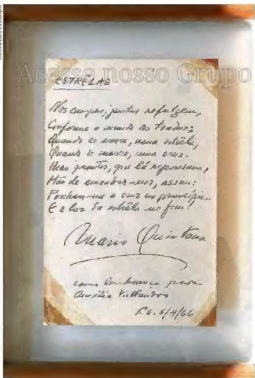 Acesse nosso Grupo
ESTRÊLAS
Nos campos, juntas refulgem,
Conforme o mundo as traduz:
Quando se nasce, uma estrêla,
Quando se morre, uma cruz.
Mas quantos, que lá repousam,
Hão de emendar-nos, assim:
"Ponham-me a cruz no princípio...
E a luz da estrêla no fim!"
Mario Quintana
como lembrança para
P.A. 5/4/66